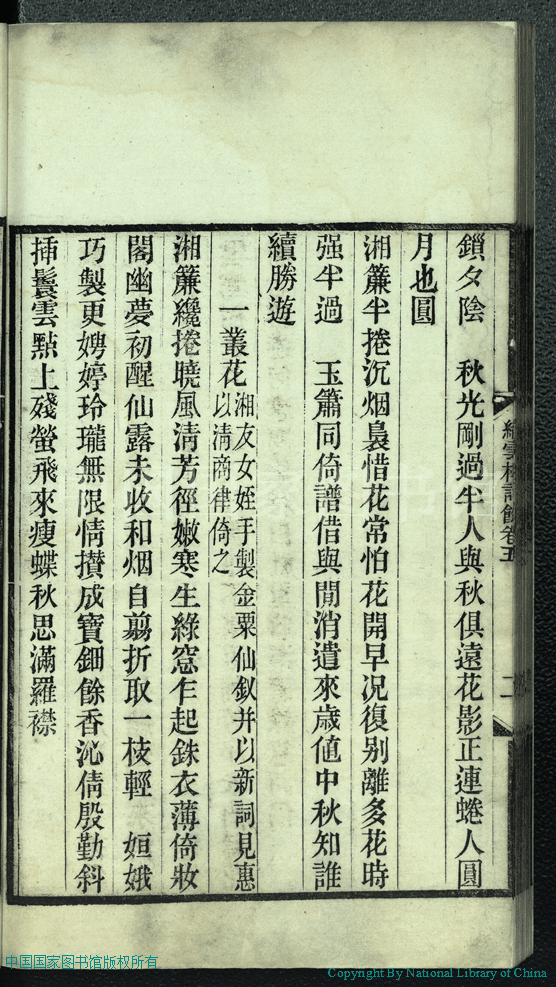 鎖夕陰　秋光剛過半人與秋俱遠花影正連蜷人圓
月也圓
湘簾半捲沉烟裊惜花常怕花開早况復别離多花時
强半過　玉簫同倚譜借與閒消遣來歲値中秋知誰
續勝遊
一叢花湘友女姪手製金粟仙釵并以新詞見惠
以淸商律倚之
湘簾纔捲曉風淸芳徑嫩寒生綠窓乍起銖衣薄倚妝
閣幽夢初醒仙露未收和烟自翦折取一枝輕　姮娥
巧製更娉婷玲瓏無限情攅成寶鈿餘香沁倩殷勤斜
揷鬢雲點上殘螢飛來瘦蝶秋思滿羅襟
雲 詩餘卷五
中国国家图书馆版权所有
Copyright By National Library of China